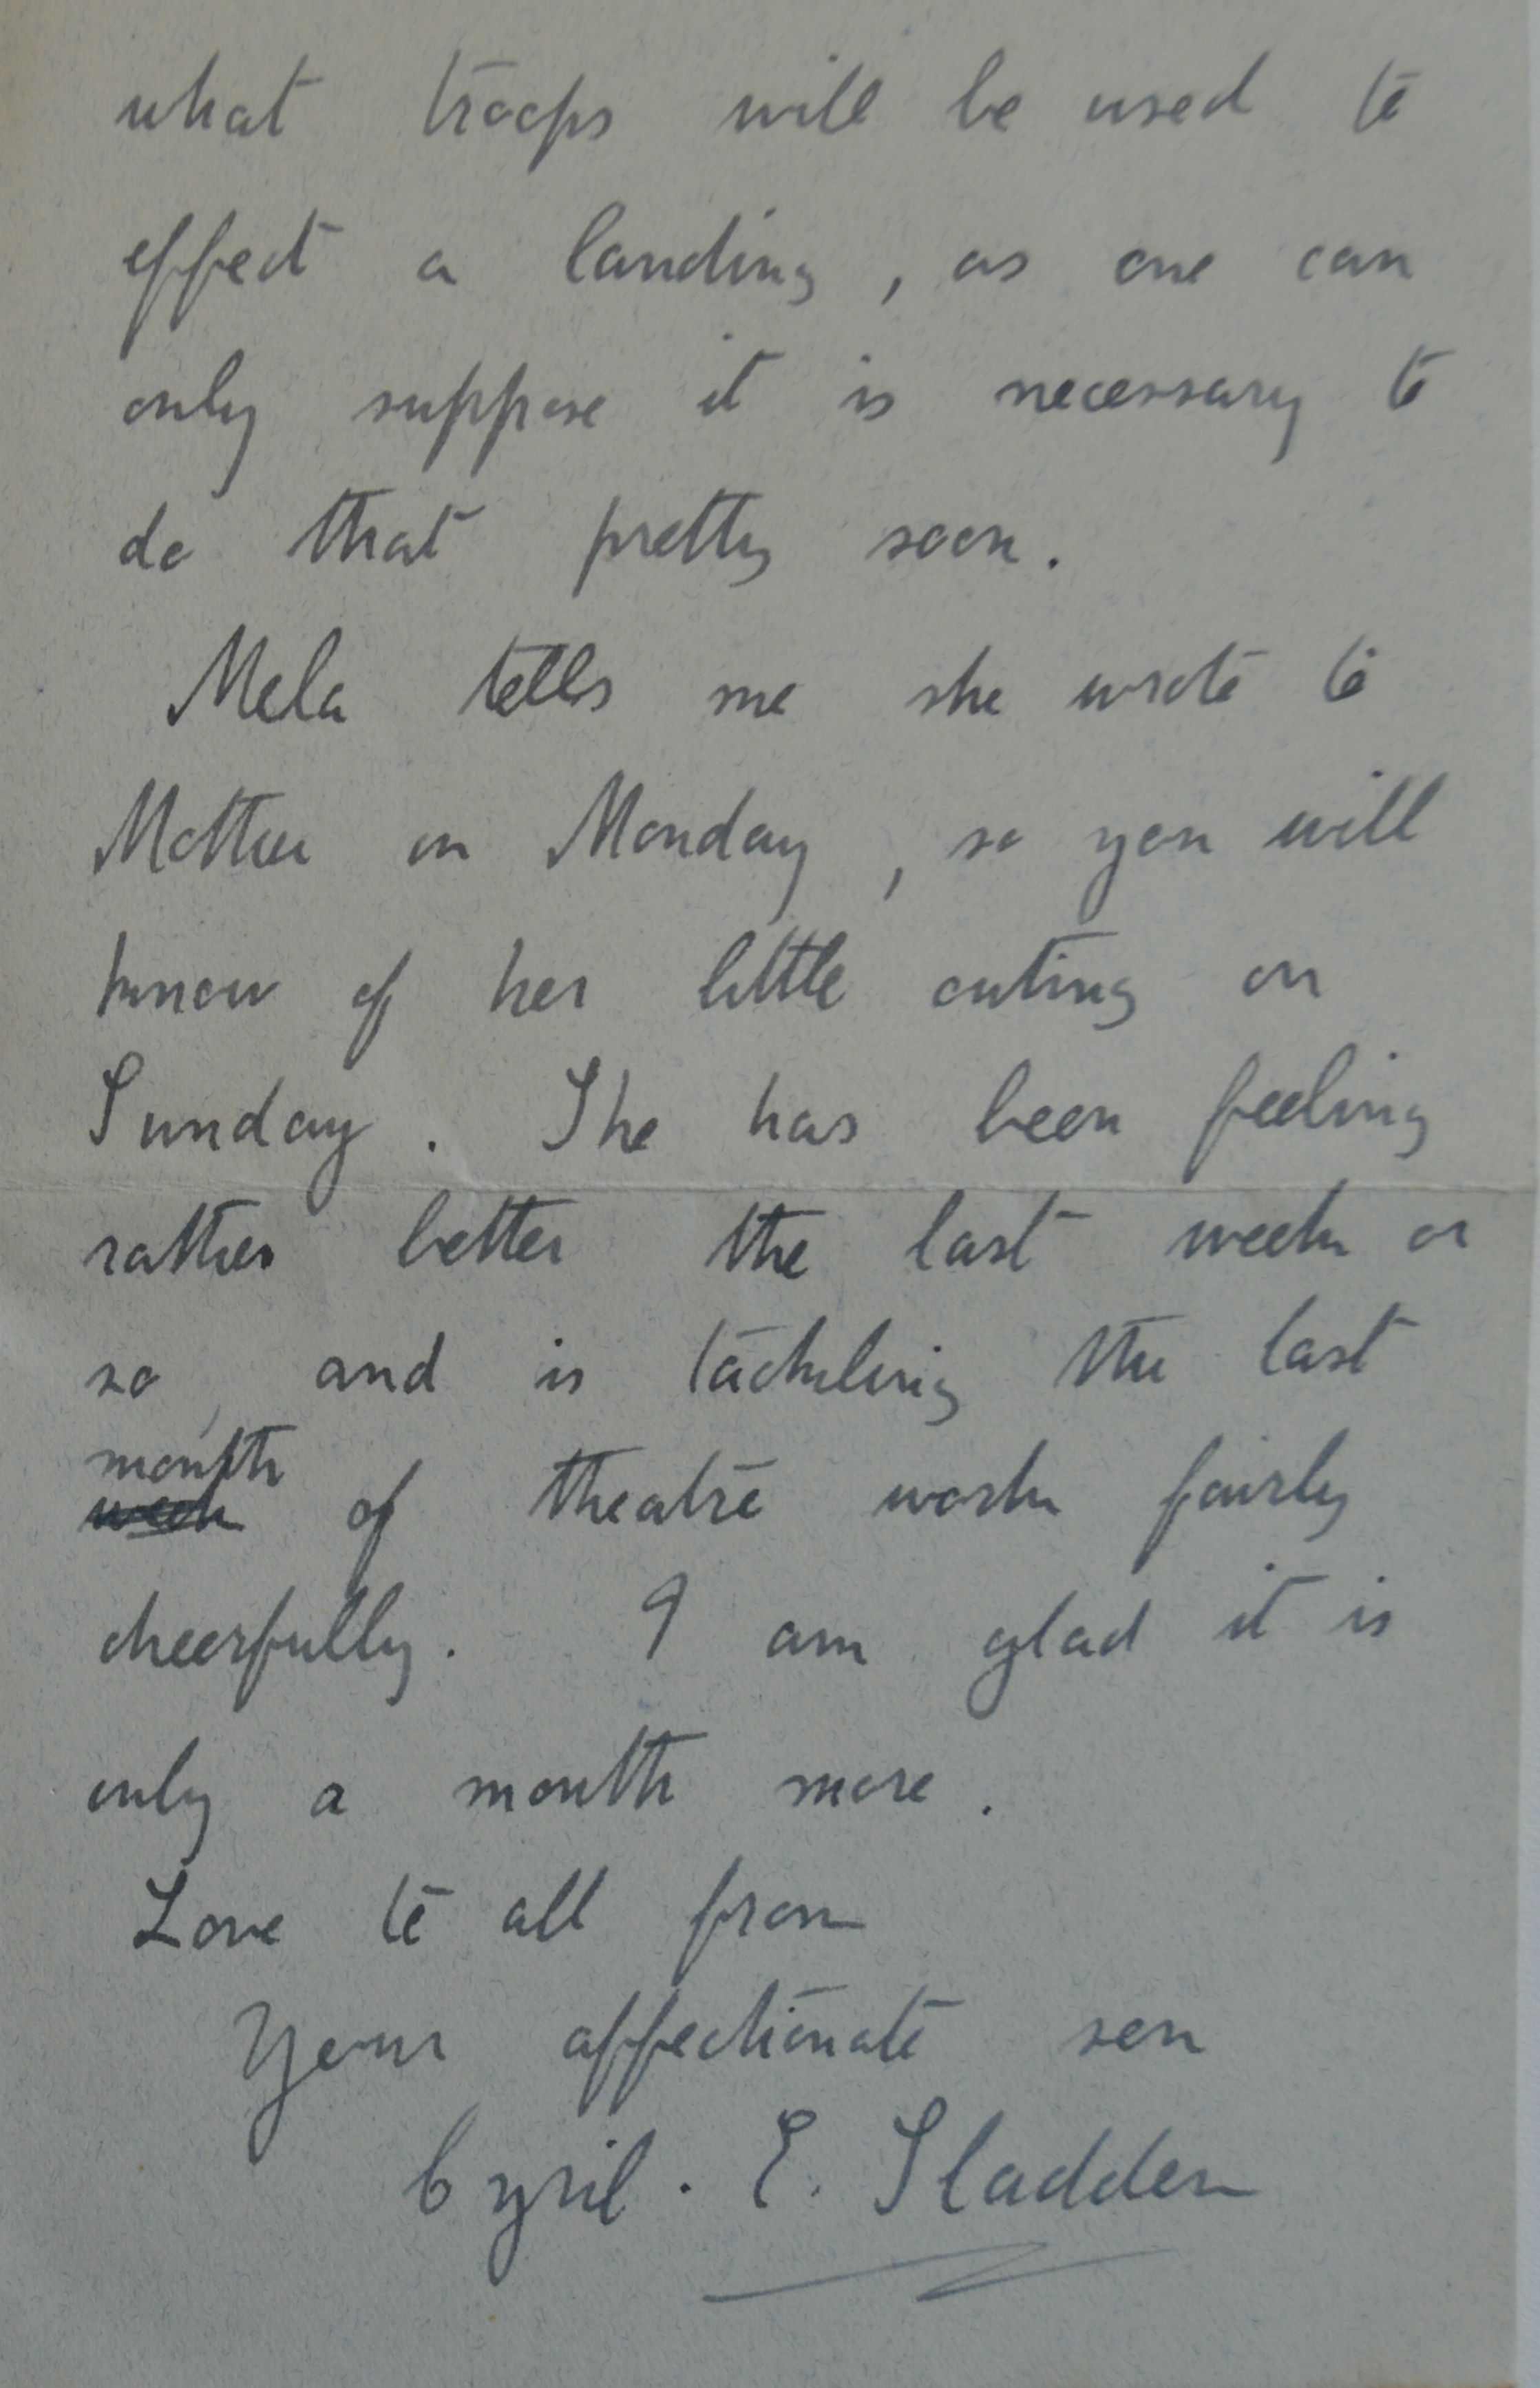 what troops will be used to
effect a landing, as one can
only suppose it is necessary to
do that pretty soon.
Mela tells me she wrote to
Mother on Monday, so you will
know of her little outing on
Sunday. She has been feeling
rather better the last week or
so, and is tackling the last
month
week of theatre work fairly
cheerfully. I am glad it is
only a month more.
Love to all from
Your affectionate son
Cyril. E. Sladden